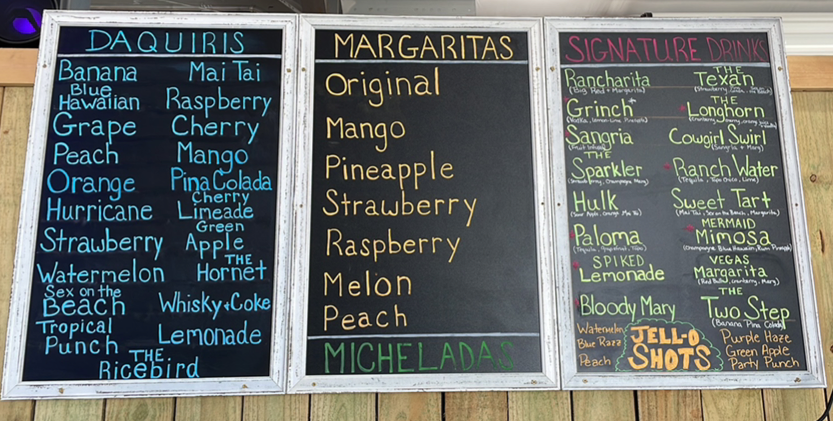 DAQUIRIS
Banana
Blue
Hawaiian
Grape
Peach
Orange
Hurricane
Strawberry
Watermelon
Sex on the
Beach
Tropical
Punch
Mai Tai
Raspberry
Cherry
Mango
Pina Colada
Cherry
Limeade
Green
Apple
THE
Hornet
Whisky+Coke
Lemonade
THE
Ricebird
MARGARITAS
Original
Mango
Pineapple
Strawberry
Raspberry
Melon
Peach
MICHELADAS
SIGNATURE DRINKS
Rancharita
(Big Red + Margarita)
Grinch
(Vodka, Lemon-Lime, Pineapple)
Sangria
THE
Sparkler
Hulk
(Sour Apple, Orange, Mai Tai)
Paloma
(Tequila, Grapefruit, Topo)
SPIKED
Lemonade
Bloody Mary
THE
Texan
THE
Longhorn
Cowgirl Swirl
(Sangria + Marg)
Ranch Water
(Tequila, Topo Chico, Lime)
Sweet Tart
(Mai Tai, Sex on the Beach, Margarita)
MERMAID
Mimosa
(Champagne, Blue Hawaiian, Rum, Pineapple)
VEGAS
Margarita
(Red Bull, Cranberry, Marg)
THE
Two Step
(Banana Pina Colada)
Watermelon
Blue Razz
Peach
JELL-O
SHOTS
Purple Haze
Green Apple
Party Punch